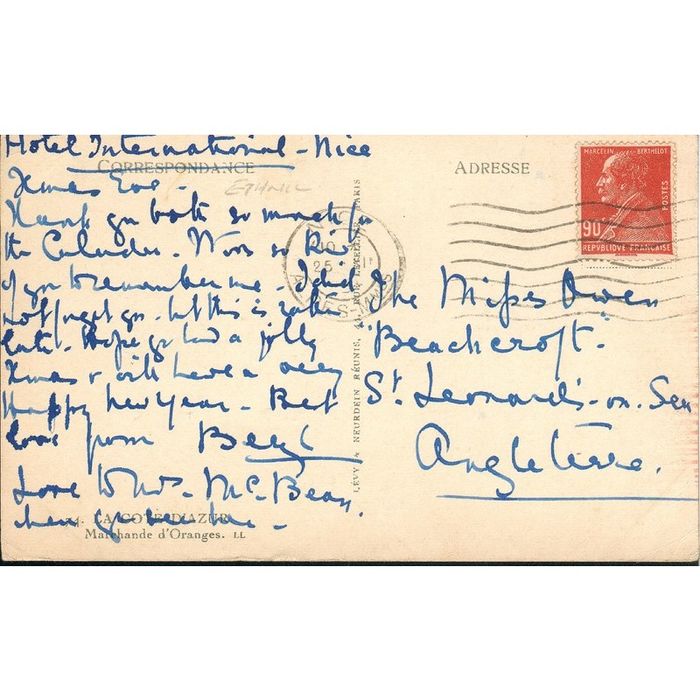 Hotel International - Nice
CORRESPONDANCE
Xmas Eve
Thank you both so much for
the Calendar. Was so kind
of you to remember me - I did
not forget you. but this is rather
late. Hope you had a jolly
Xmas & will have a very
Happy New Year - Best
love from Beryl
Love to Mrs. McBean
when you see her -
74. LA COTE D'AZUR
Marchande d'Oranges. LL
LÉVY & NEURDEIN RÉUNIS, PARIS
NICE
25
ADRESSE
MARCELIN BERTHELOT
POSTES
90
REPVBLIQVE FRANÇAISE
The Misses Owen
"Beachcroft"
St. Leonard's-on-Sea
Angleterre.